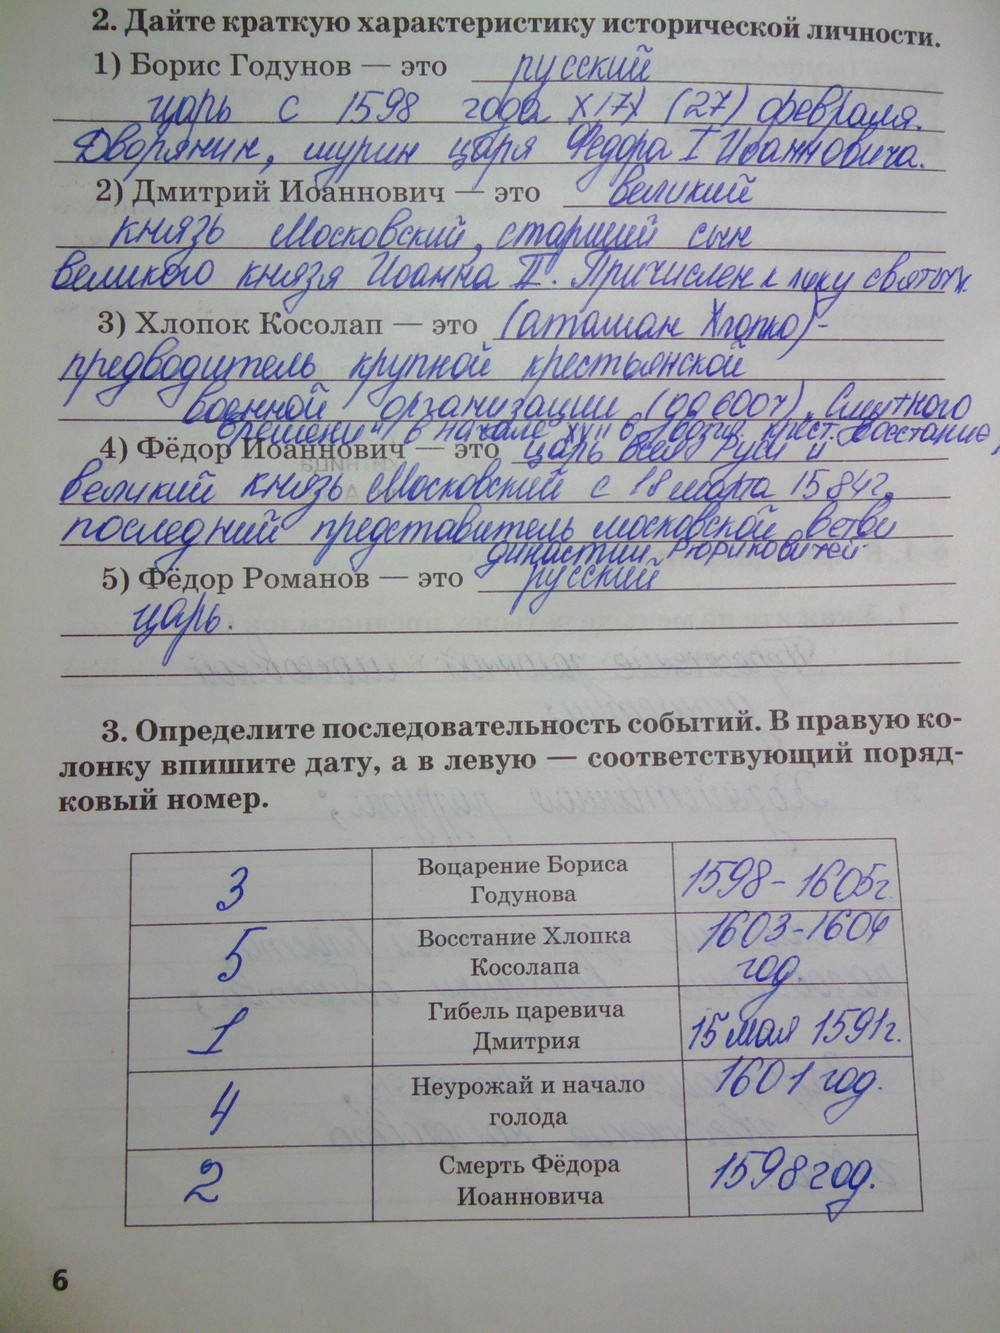 2. Дайте краткую характеристику исторической личности.
1) Борис Годунов — это русский
царь с 1598 года (17) (27) февраля.
Дворянин, шурин царя Федора I Иоанновича.
2) Дмитрий Иоаннович — это великий
князь Московский, старший сын
великого князя Иоанна II. Причислен к лику святых.
3) Хлопок Косолап — это (атаман Хлопко) -
предводитель крупной крестьянской
военной организации (до 600ч). Смутного
времени в начале XVII в. крест. восстание,
4) Фёдор Иоаннович — это царь всея Руси и
великий князь Московский с 18 марта 1584г,
последний представитель московской ветви
династии Рюриковичей.
5) Фёдор Романов — это русский
царь.
3. Определите последовательность событий. В правую ко-
лонку впишите дату, а в левую — соответствующий поряд-
ковый номер.
3 Воцарение Бориса Годунова 1598-1605г.
5 Восстание Хлопка Косолапа 1603-1604 год
1 Гибель царевича Дмитрия 15 мая 1591г.
4 Неурожай и начало голода 1601 год.
2 Смерть Фёдора Иоанновича 1598 год.
6